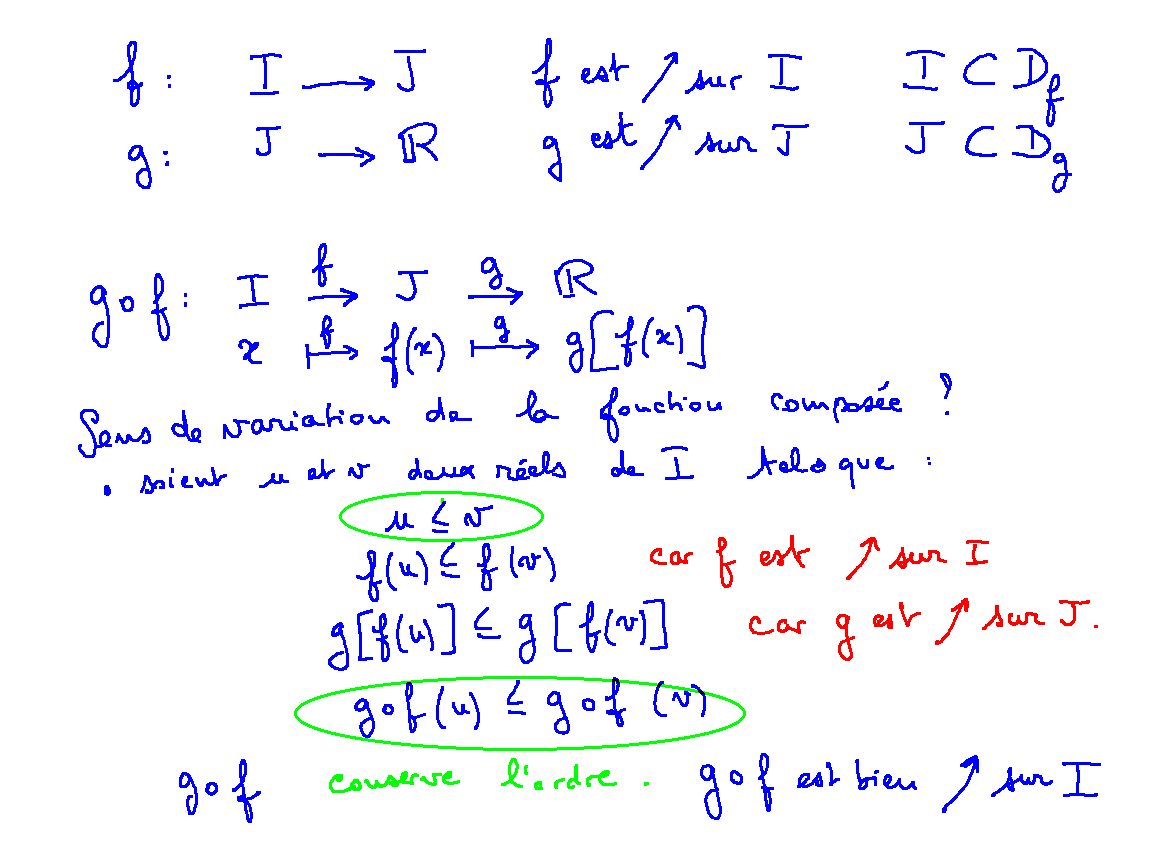 f : I → J f est ↗ sur I I ⊂ D_f
g : J → ℝ g est ↗ sur J J ⊂ D_g
g∘f : I →^f J →^g ℝ
x ↦^f f(x) ↦^g g[f(x)]
Sens de variation de la fonction composée ?
• soient u et v deux réels de I tels que :
u ≤ v
f(u) ≤ f(v) car f est ↗ sur I
g[f(u)] ≤ g[f(v)] car g est ↗ sur J.
g∘f(u) ≤ g∘f(v)
g∘f conserve l'ordre. g∘f est bien ↗ sur I